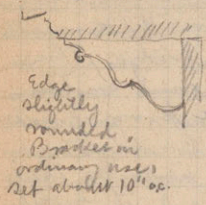 Edge
slightly
rounded.
Bracket in
ordinary use,
set about 10" o.c.